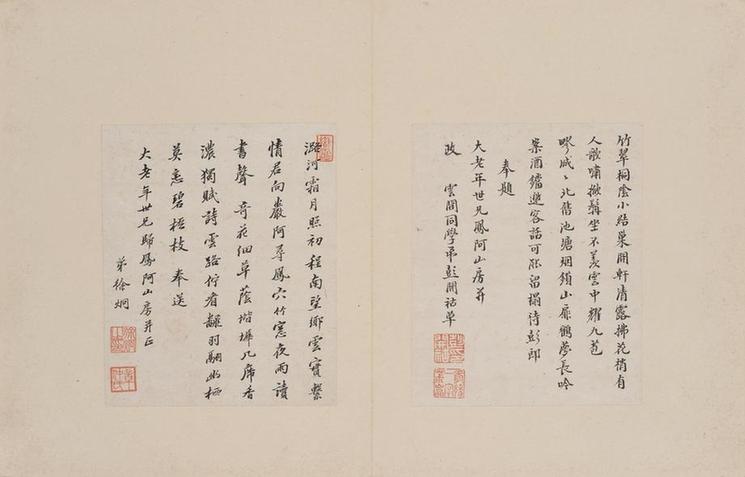 竹翠桐陰小結巢開軒清露拂花梢有
人歌嘯撚鬚坐不羨雲中耀九苞
城北舊池塘烟鎖山扉鶴夢長吟
罷酒鐺邀客話可能留榻待彭郎
奉題
大老年世兄鳳阿山房并
政 雲間同學弟彭開祜草
潞河霜月照初程南望鄉雲寶繫
情君向巖阿尋鳳穴竹窓夜雨讀
書聲 奇花細草蔭堦墀几席香
濃獨賦詩雲路佇看翽羽翩幽栖
莫戀碧梧枝 奉送
大老年世兄歸鳳阿山房并正
弟徐炯